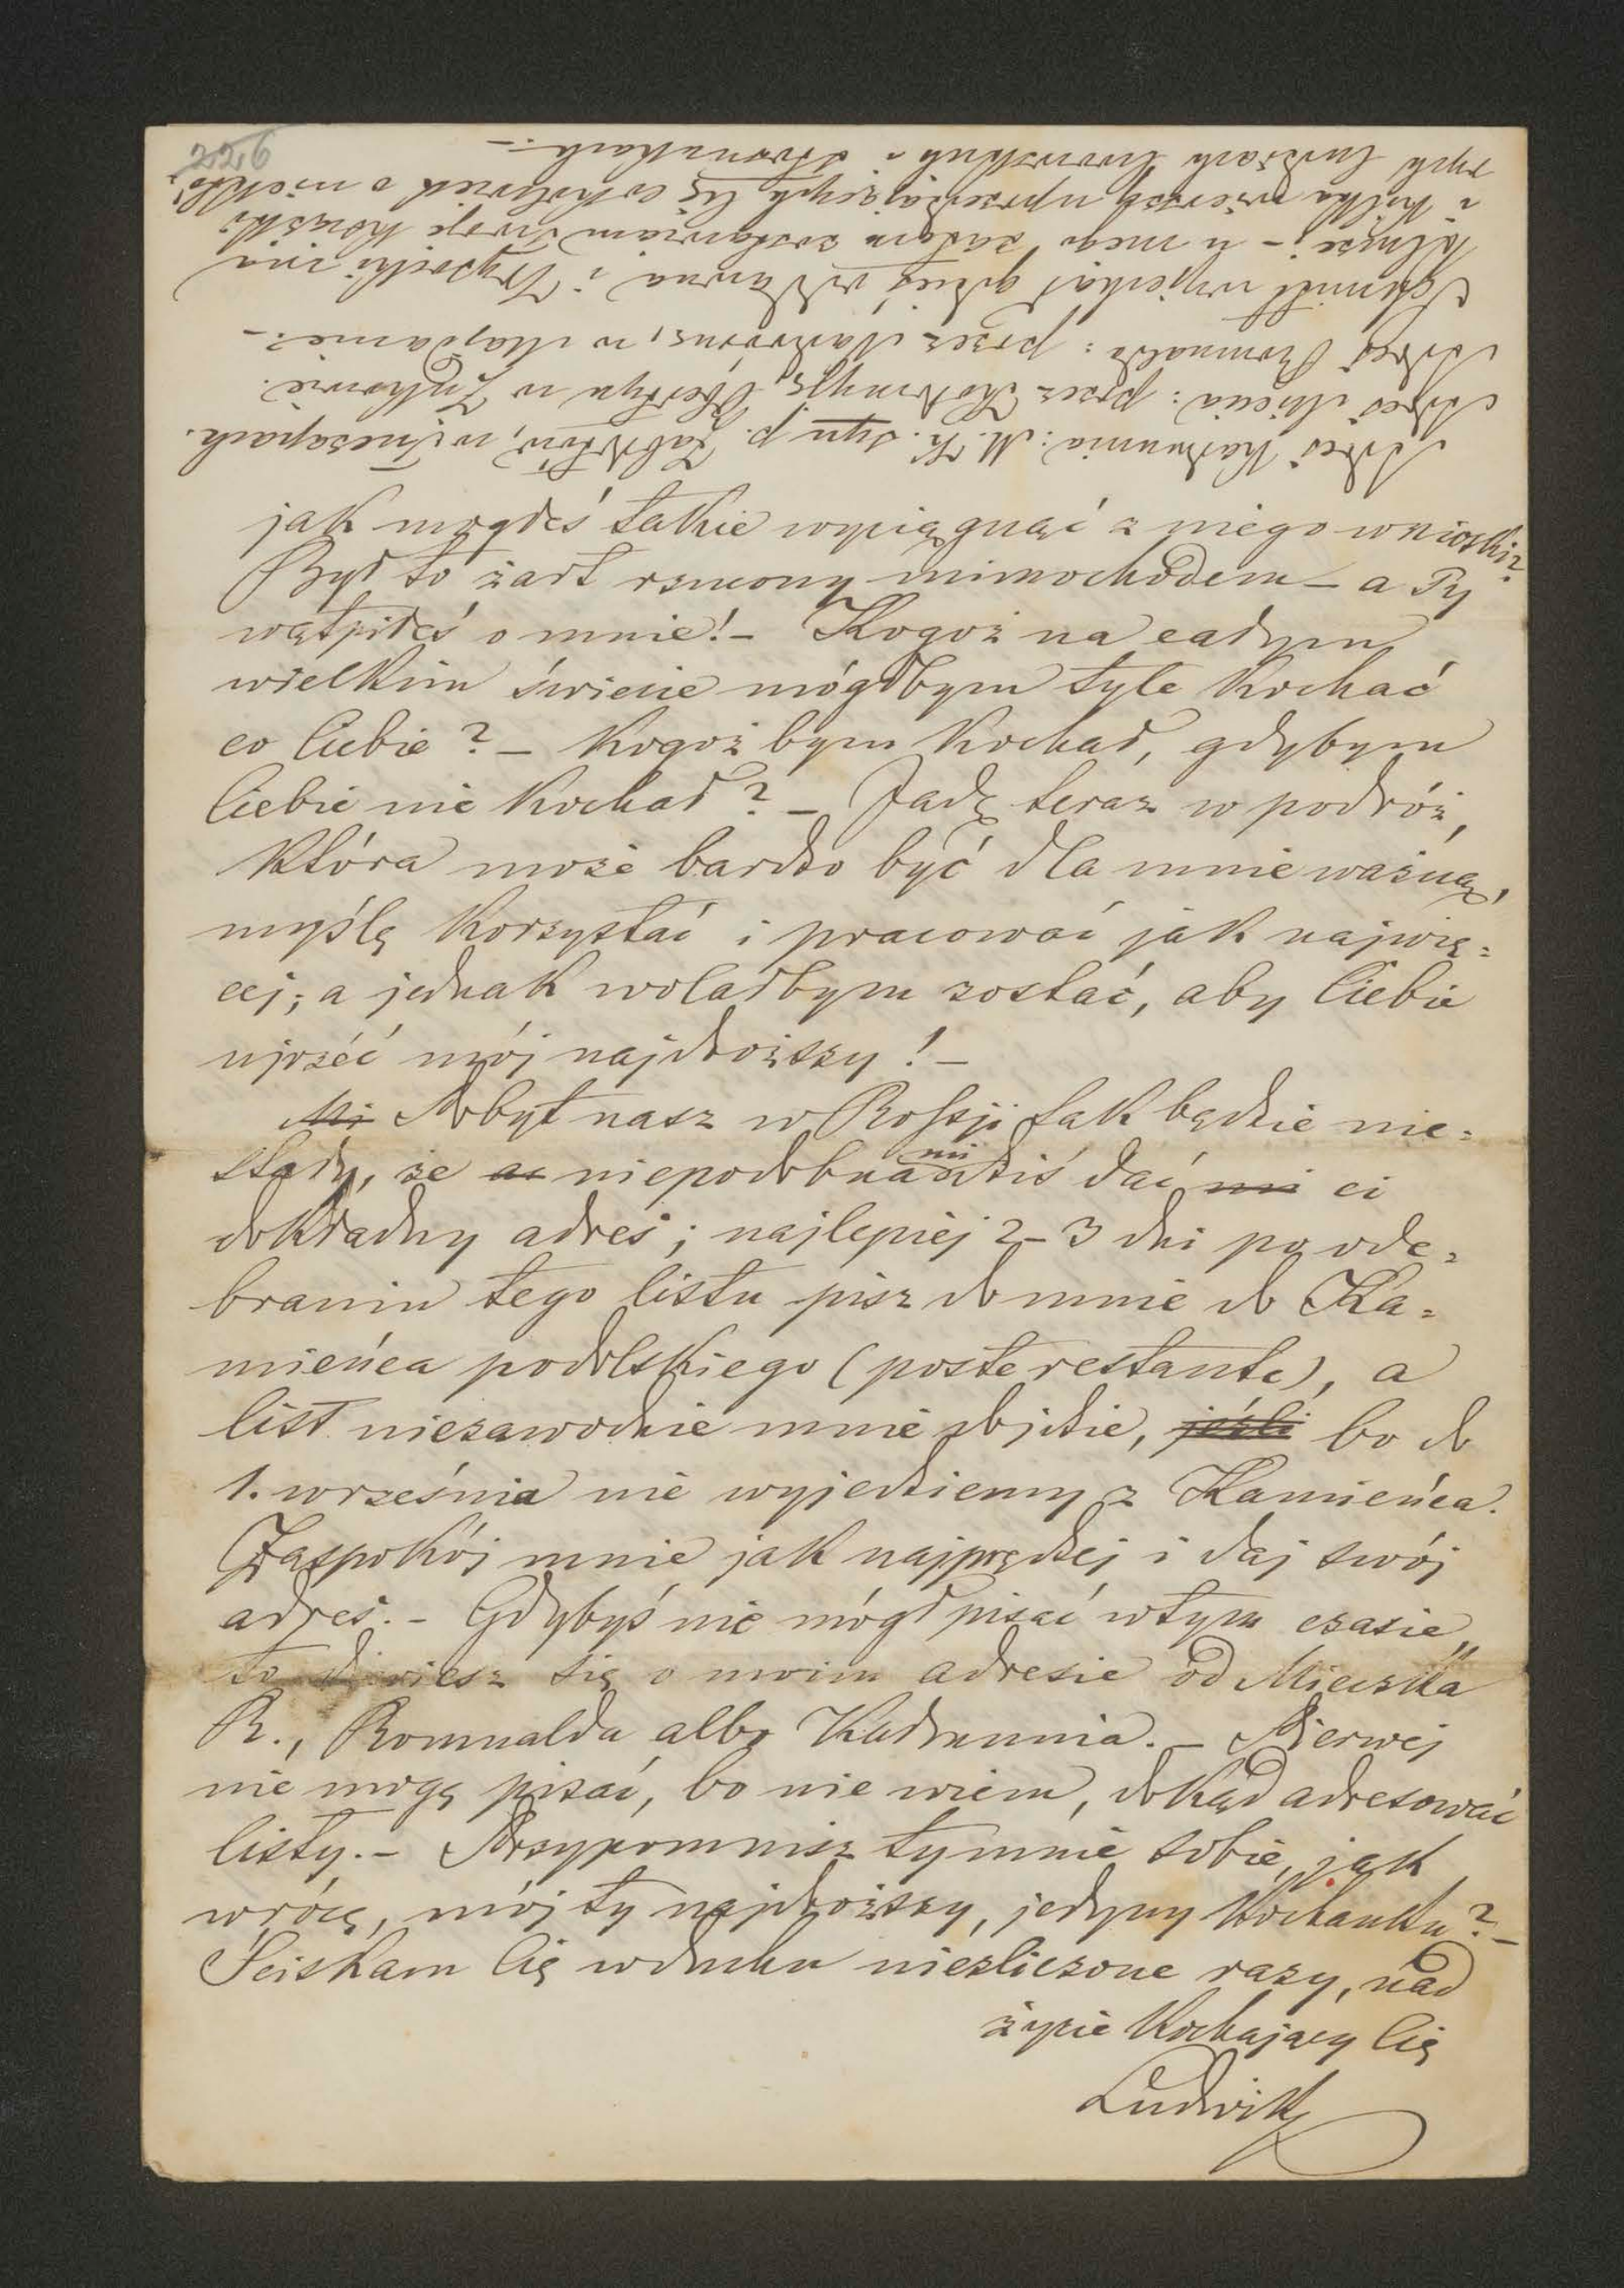 226
jak mogłeś takie wyciągnąć z niego wnioski?
Był to żart rzucony mimochodem – a Ty
wątpiłeś o mnie! – Kogoż na całym
wielkim świecie mógłbym tyle kochać
co Ciebie? – Kogoż bym kochał, gdybym
Ciebie nie kochał? – Jadę teraz w podróż,
która może bardzo być dla mnie ważną,
myślę korzystać i pracować jak najwię=
cej; a jednak wolałbym zostać, aby Ciebie
ujrzéć mój najdroższy! –
Mi Pobyt nasz w Rossji tak będzie nie=
stały, że niepodobna mi dziś dać mi ci
dokładny adres; najlepiéj 2–3 dni po ode=
braniu tego listu pisz do mnie do Ka=
mieńca podolskiego (poste restante), a
list niezawodnie mnie dojdzie, jeśli bo do
1. września nie wyjedziemy z Kamieńca.
Zaspokój mnie jak najprędzej i daj swój
adres. – Gdybyś nie mógł pisać w tym czasie,
to dowiesz się o moim adresie od Miecszka
R., Romualda albo Kadrunnia. – Pierwej
nie mogę pisać, bo nie wiem, dokąd adresować
listy. – Przypomnisz ty mnie sobie, jak
wrócę, mój ty najdroższy, jedyny kochanku? –
Ściskam Cię w duchu niezliczone razy, nad
życie kochający Cię
Ludwik
Adres M. K. p. Zabłotów, w
Adres Miecia: przez Kołomyję, Obertyn w Żukowie.
Adres Romualda: przez Nadwórnę, w Majdanie. –
Schmidt wyjechał gdzieś od dawna i
– u mego zostawiam Twoje książki
i kilka wierszy
rych ludziach lwowskich i stosunkach. –